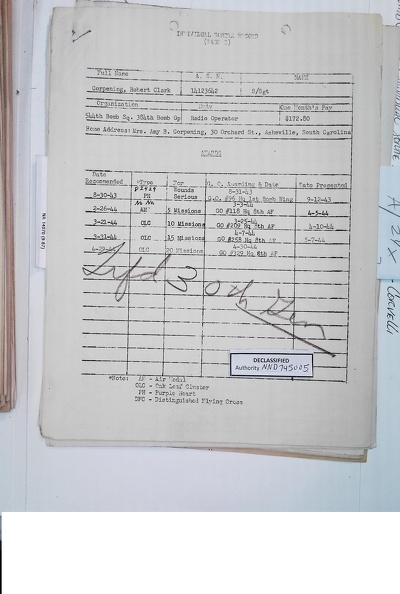 INDIVIDUAL COMBAT RECORD
(PAGE 2)
Full Name A. S. N. RANK
Corpening, Robert Clark 14123642 S/Sgt
Organization Duty One Month's Pay
544th Bomb Sq. 384th Bomb Gp Radio Operator $172.80
Home Address: Mrs. Amy B. Corpening, 30 Orchard St., Asheville, South Carolina
AWARDS
Date Recommended *Type For G. O. Awarding & Date Date Presented
8-30-43 PH Wounds Serious 8-31-43 G.O. #96 Hq 1st Bomb Wing 9-12-43
2-26-44 AM 5 Missions 3-3-44 GO #118 Hq 8th AF 4-5-44
3-21-44 OLC 10 Missions 3-25-44 GO #202 Hq 8th AF 4-10-44
3-31-44 OLC 15 Missions 4-7-44 GO #258 Hq 8th AF 5-7-44
4-29-44 OLC 20 Missions 4-30-44 GO #329 Hq 8th AF
Trfd 30th
DECLASSIFIED
Authority NND 745005
*Note: AM - Air Medal
OLC - Oak Leaf Cluster
PH - Purple Heart
DFC - Distinguished Flying Cross